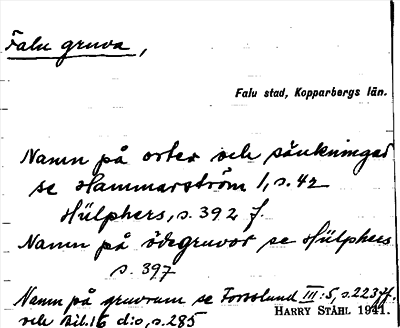 Falu gruva,
Falu stad, Kopparbergs län.
Namn på orter och sänkningar
se Hammarström 1, s. 42
Hülphers, s. 392 f.
Namn på ödegruvor se Hülphers
s. 397
Namn på gruvrum se Forsslund III:5, s. 223 ff.
och Bil. 16 d:o, s. 285
HARRY STÅHL 1941.